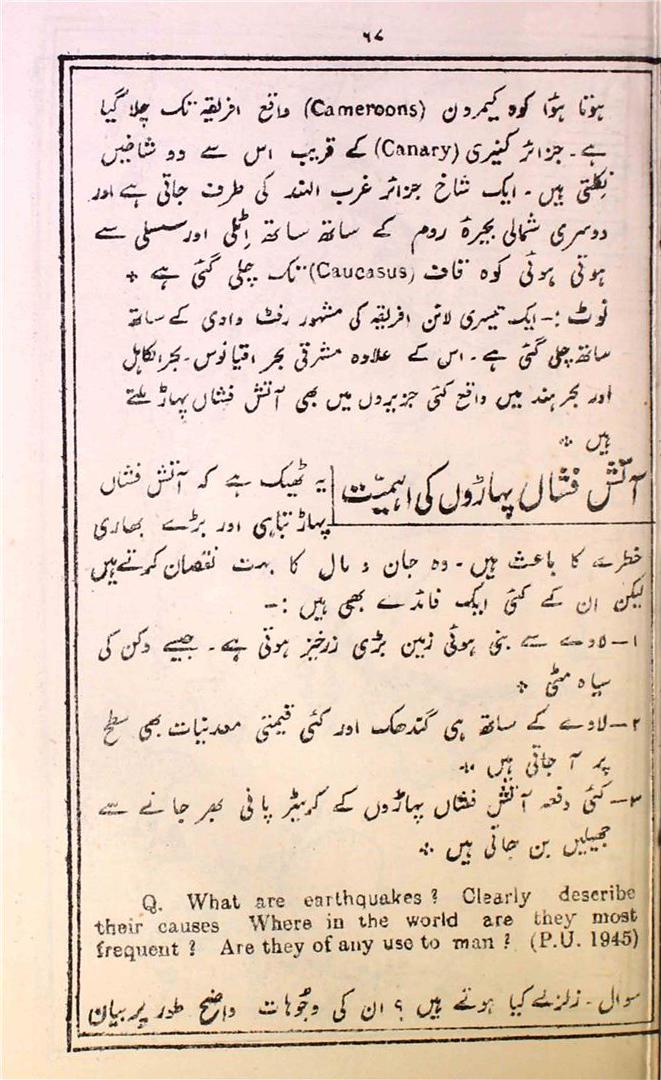 ۶۸
ہوتا ہؤا کوہ کیمرون (Cameroons) واقع افریقہ تک چلا گیا
ہے۔ جزائر کنیری (Canary) کے قریب اس سے دو شاخیں
نکلتی ہیں۔ ایک شاخ جزائر غرب الہند کی طرف جاتی ہے اور
دوسری شمالی بحیرۂ روم کے ساتھ ساتھ اٹلی اور سسلی سے
ہوتی ہوئی کوہ قاف (Caucasus) تک چلی گئی ہے ٭
نوٹ :- ایک تیسری لائن افریقہ کی مشہور رفٹ وادی کے ساتھ
ساتھ چلی گئی ہے۔ اس کے علاوہ مشرقی بحر اقیانوس۔ بحر الکاہل
اور بحر ہند میں واقع کئی جزیروں میں بھی آتش فشاں پہاڑ ملتے
ہیں ٭
آتش فشاں پہاڑوں کی اہمیّت
یہ ٹھیک ہے کہ آتش فشاں
پہاڑ تباہی اور بڑے بھاری
خطرے کا باعث ہیں۔ وہ جان و مال کا بہت نقصان کرتے ہیں
لیکن ان کے کئی ایک فائدے بھی ہیں :-
۱- لاوے سے بنی ہوئی زمین بڑی زرخیز ہوتی ہے۔ جیسے دکن کی
سیاہ مٹی ٭
۲- لاوے کے ساتھ ہی گندھک اور کئی قیمتی معدنیات بھی سطح
پر آ جاتی ہیں ٭
۳- کئی دفعہ آتش فشاں پہاڑوں کے کریٹر پانی بھر جانے سے
جھیلیں بن جاتی ہیں ٭
Q. What are earthquakes ? Clearly describe
their causes Where in the world are they most
frequent ? Are they of any use to man ? (P.U. 1945)
سوال۔ زلزلے کیا ہوتے ہیں ؟ ان کی وجوہات واضح طور پر بیان